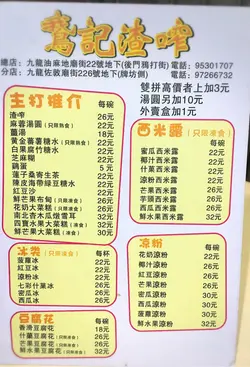 鴛記渣咋
總店：九龍油麻地廟街22號地下(後門鴉打街) 電話：95301707
分店：九龍佐敦廟街226號地下(牌坊側) 電話：97266732
雙拼高價者上加3元
湯圓另加10元
外賣盒加1元
主打推介 每碗
渣咋 26元
麻蓉湯圓(只限熱食) 22元
薑湯 18元
黃金蕃薯糖水(只限熱食) 22元
白果腐竹糖水 22元
芝麻糊 22元
鷄蛋 5元
蓮子桑寄生茶 22元
陳皮海帶綠豆糖水 22元
紅豆沙 22元
鮮芒果布甸(只限凍食) 26元
花奶大菜糕(只限凍食) 26元
南北杏木瓜燉雪耳 32元
四寶水果大菜糕(凍食) 30元
鮮水果大菜糕(凍食) 32元
冰類(只限凍食) 每杯
菠蘿冰 22元
紅豆冰 22元
涼粉冰 22元
七彩什果冰 26元
密瓜冰 26元
西瓜冰 26元
豆腐花 每碗
香滑豆腐花 18元
什菓豆腐花(凍食) 24元
芒果豆腐花(凍食) 30元
鮮水果豆腐花(凍食) 32元
西米露(只限凍食)
每碗
蜜瓜西米露 26元
椰汁西米露 22元
什菓西米露 26元
涼粉西米露 22元
芒果西米露 26元
芋頭西米露 26元
西瓜西米露 26元
鮮水果西米露 32元
涼粉
每碗
花奶涼粉 22元
椰汁涼粉 22元
紅豆涼粉 26元
什菓涼粉 26元
芒果涼粉 30元
密瓜涼粉 30元
西瓜涼粉 30元
菠蘿涼粉 30元
鮮水果涼粉 32元